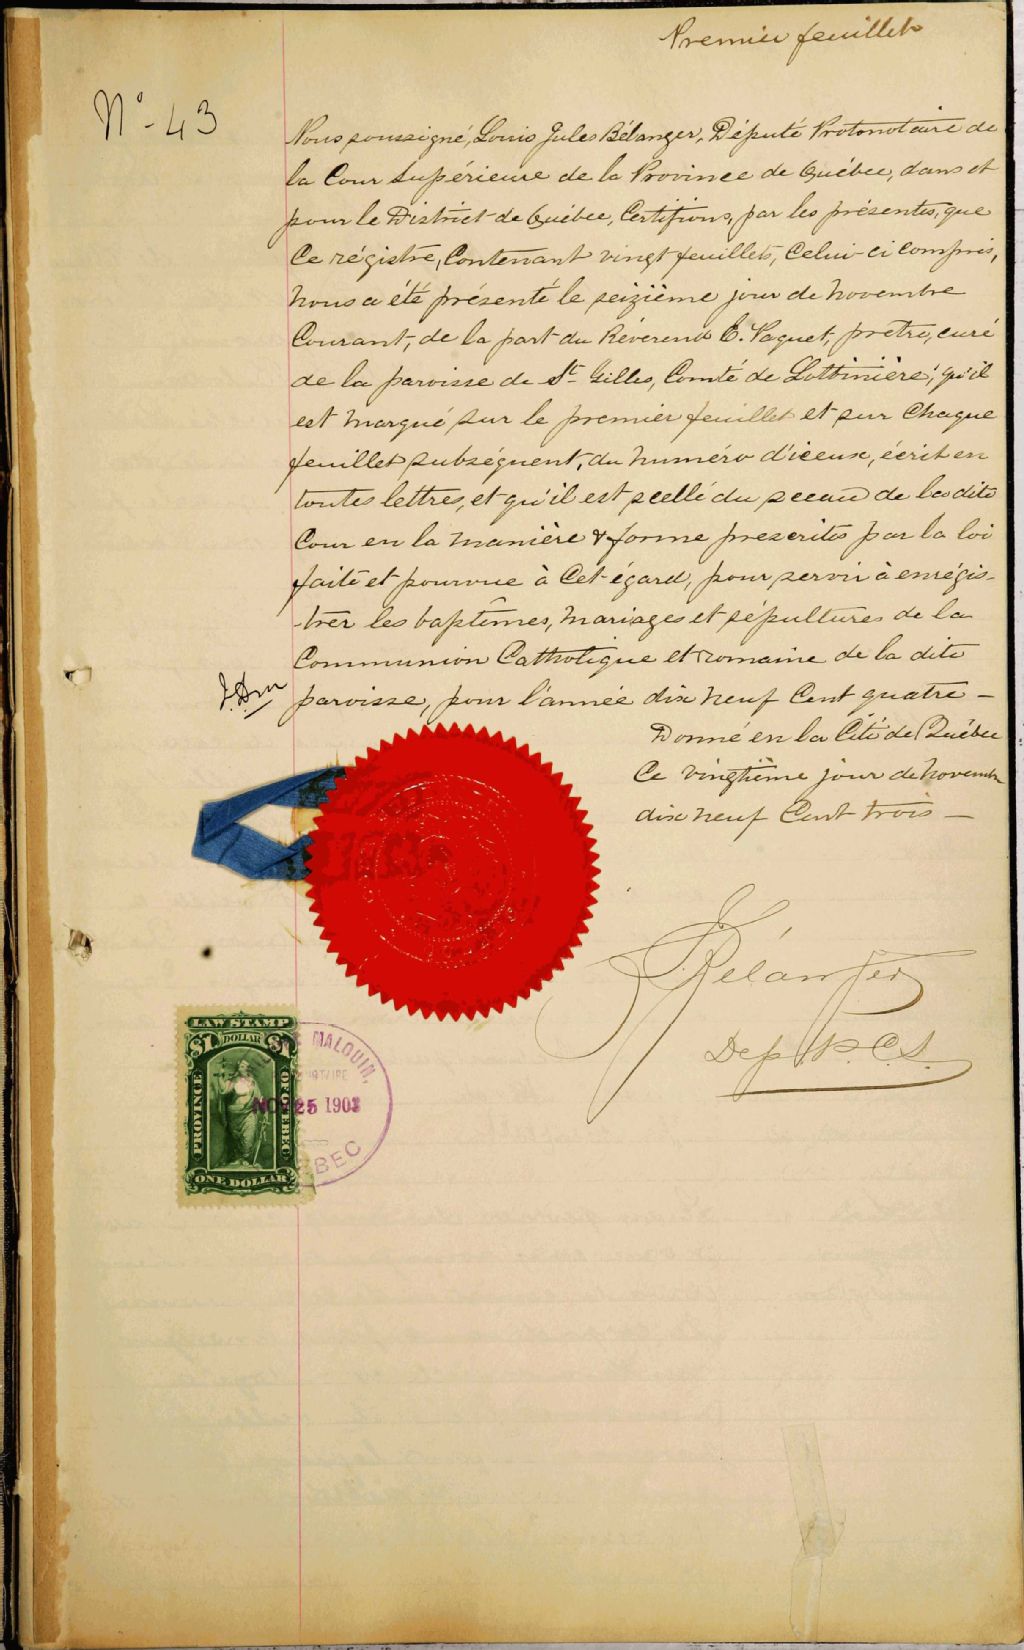 Premier feuillet
N° - 43
Nous soussigné, Louis Jules Bélanger, Député Protonotaire de
la Cour Supérieure de la Province de Québec, dans et
pour le District de Québec, Certifions, par les présentes, que
Ce régistre, Contenant vingt feuillets, Celui-ci compris,
nous a été présenté le seizième jour de novembre
Courant, de la part du Révérend E. Paquet, prêtre, curé
de la paroisse de St Gilles, Comté de Lotbinière, qu'il
est marqué sur le premier feuillet et sur Chaque
feuillet subséquent, du numéro d'iceux, écrit en
toutes lettres, et qu'il est scellé du sceau de la dite
Cour en la manière & forme prescrites par la loi
faite et pourvue à Cet égard, pour servir à enrégis-
-trer les baptêmes, mariages et sépultures de la
Communion Catholique et romaine de la dite
paroisse, pour l'année dix neuf Cent quatre —
Donné en la Cité de Québec
Ce vingtième jour de novembre
dix neuf Cent trois —
Bélanger
Dep P.C.S.
LAW STAMP
$1 DOLLAR $1
PROVINCE OF QUEBEC
ONE DOLLAR
MALOUIN,
NOV 25 1903
BEC